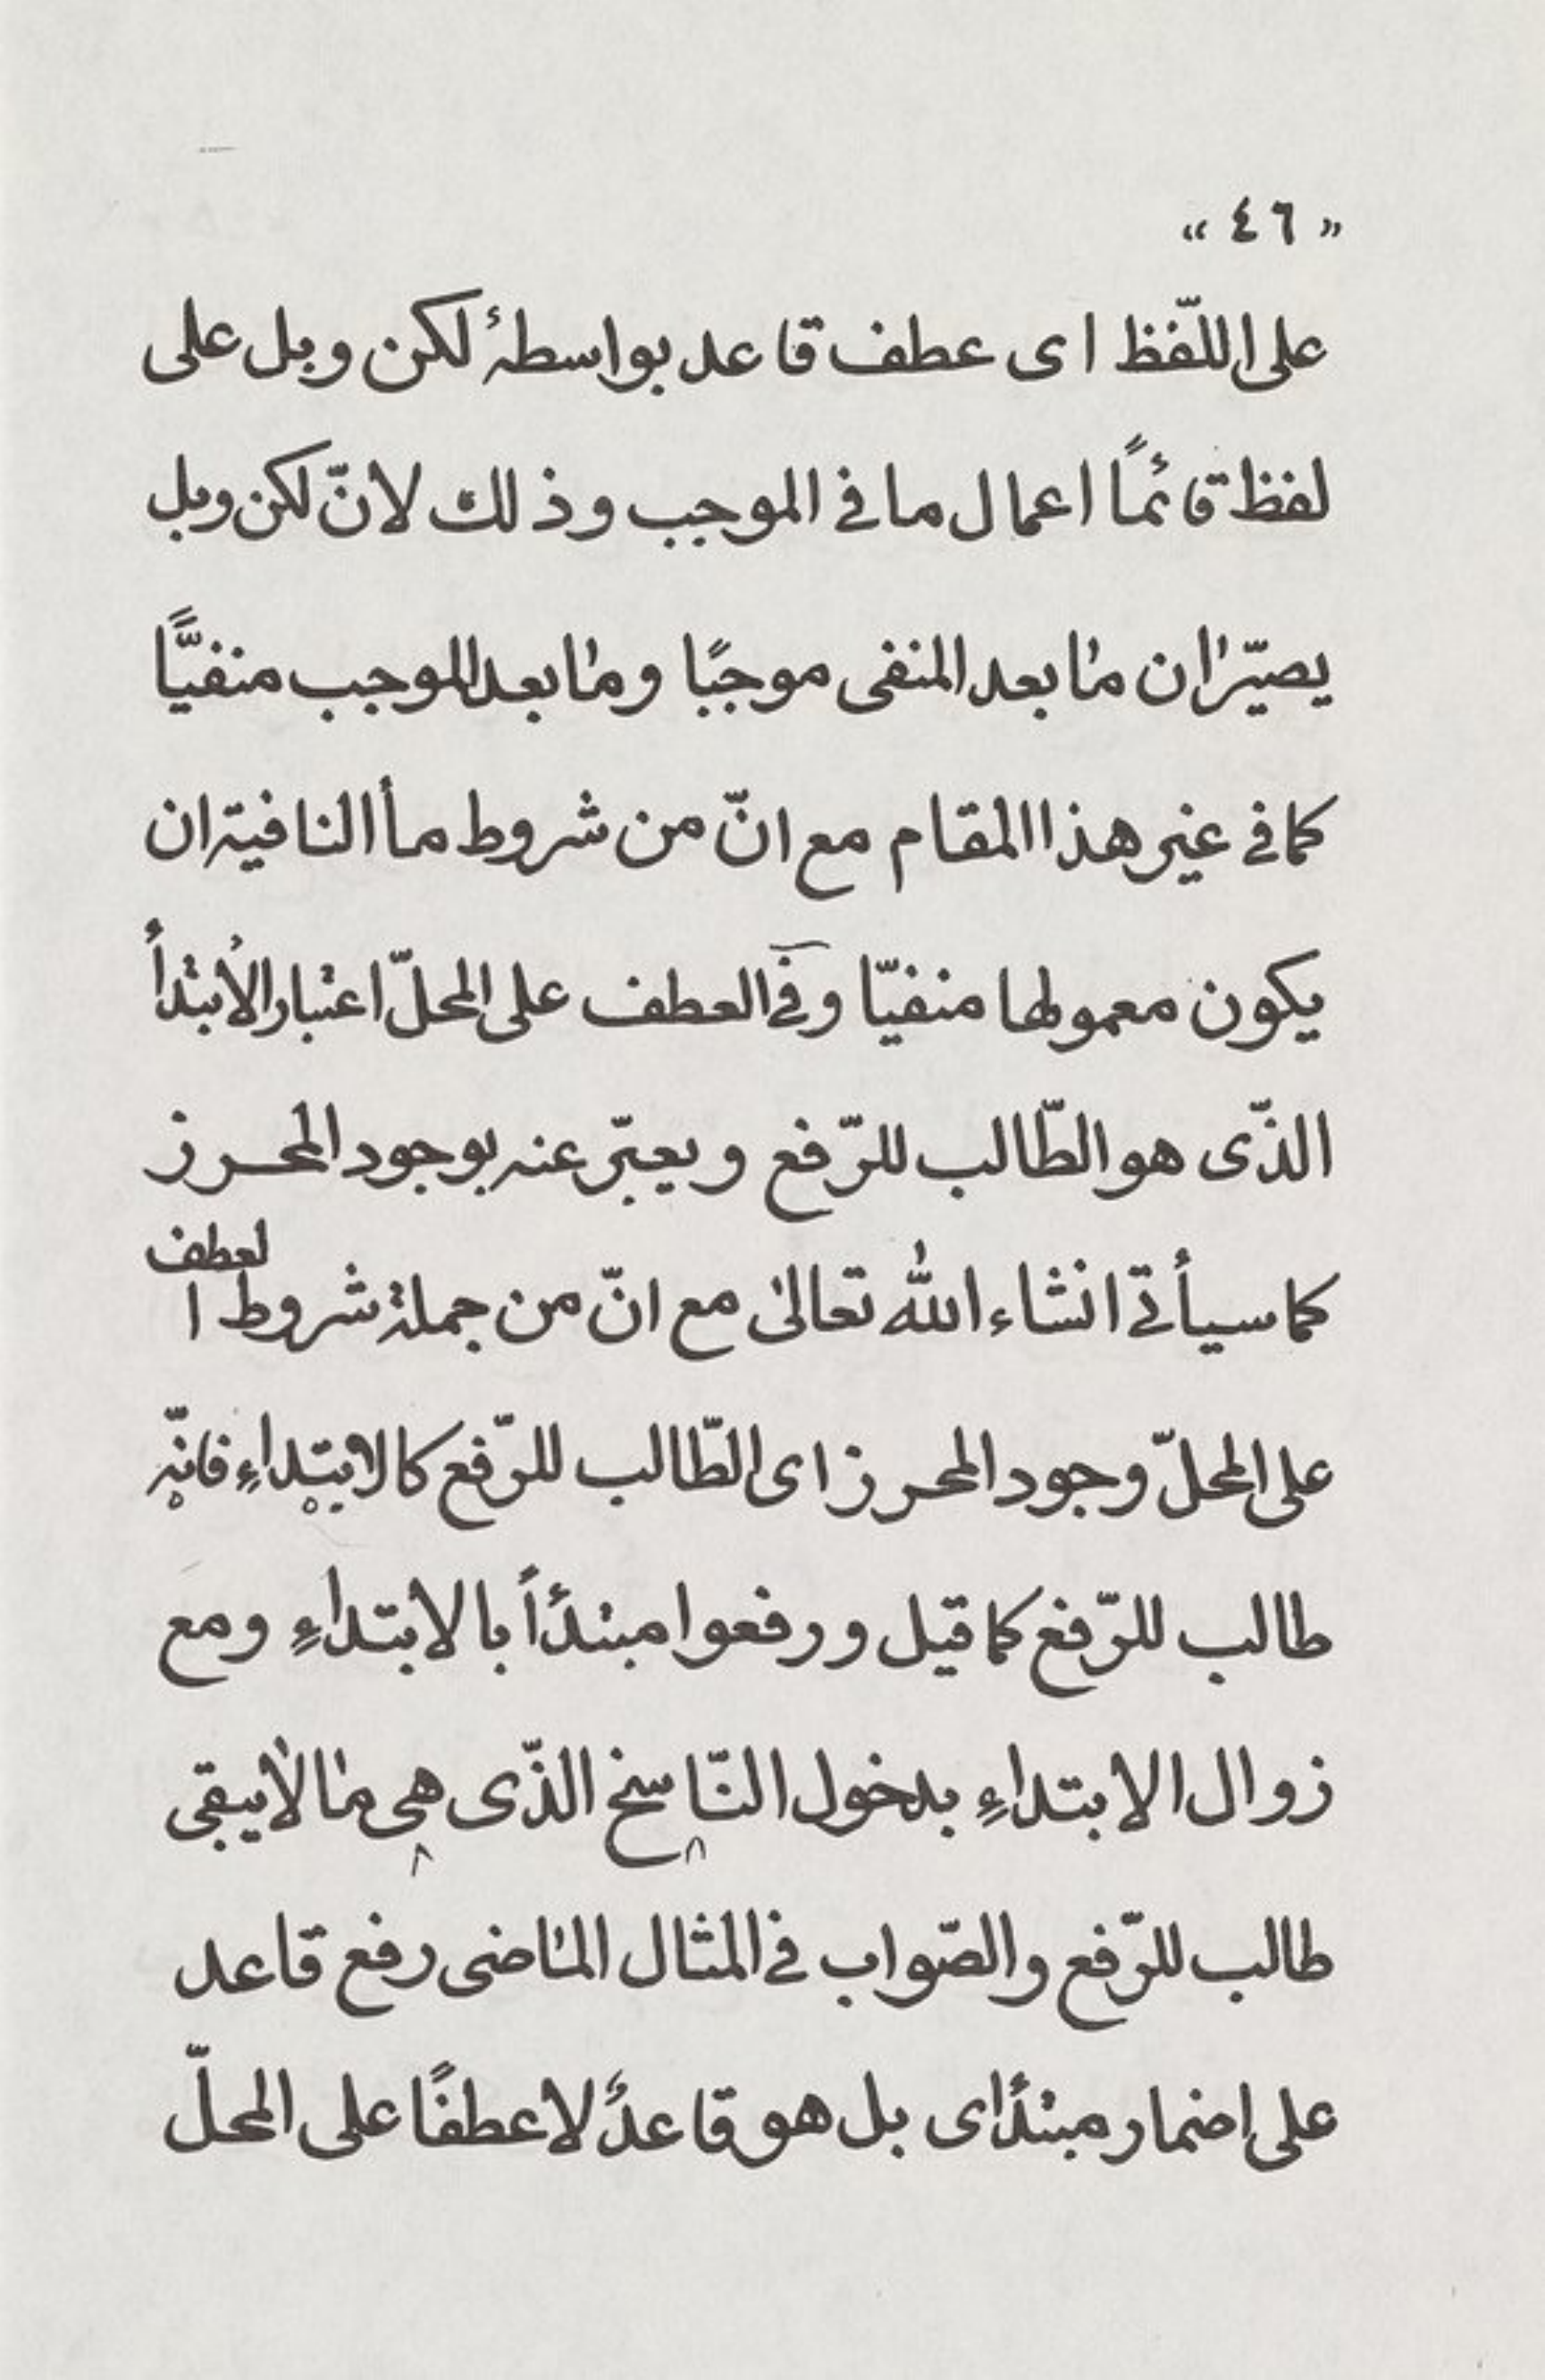 « ٤٦ »
على اللّفظ اى عطف قاعد بواسطهٔ لكن وبل على
لفظ قائمًا اعمال ما فى الموجب وذلك لانّ لكن وبل
يصيّران ما بعد المنفى موجبًا وما بعد الموجب منفيًّا
كما فى غير هذا المقام مع انّ من شروط مأ النافية ان
يكون معمولها منفيّا وفى العطف على المحلّ اعتبار الأبتدأ
الذّى هو الطّالب للرّفع ويعبّر عنه بوجود المحرز
كما سيأتى انشاء الله تعالى مع انّ من جملة شروط العطف
على المحلّ وجود المحرز اى الطّالب للرّفع كالابتداءِ فانّه
طالب للرّفع كما قيل ورفعوا مبتدأً بالابتداءِ ومع
زوال الابتداءِ بدخول النّاسخ الذّى هى ما لا يبقى
طالب للرّفع والصّواب فى المثال الماضى رفع قاعد
على اضمار مبتدأ اى بل هو قاعدٌ لا عطفًا على المحلّ